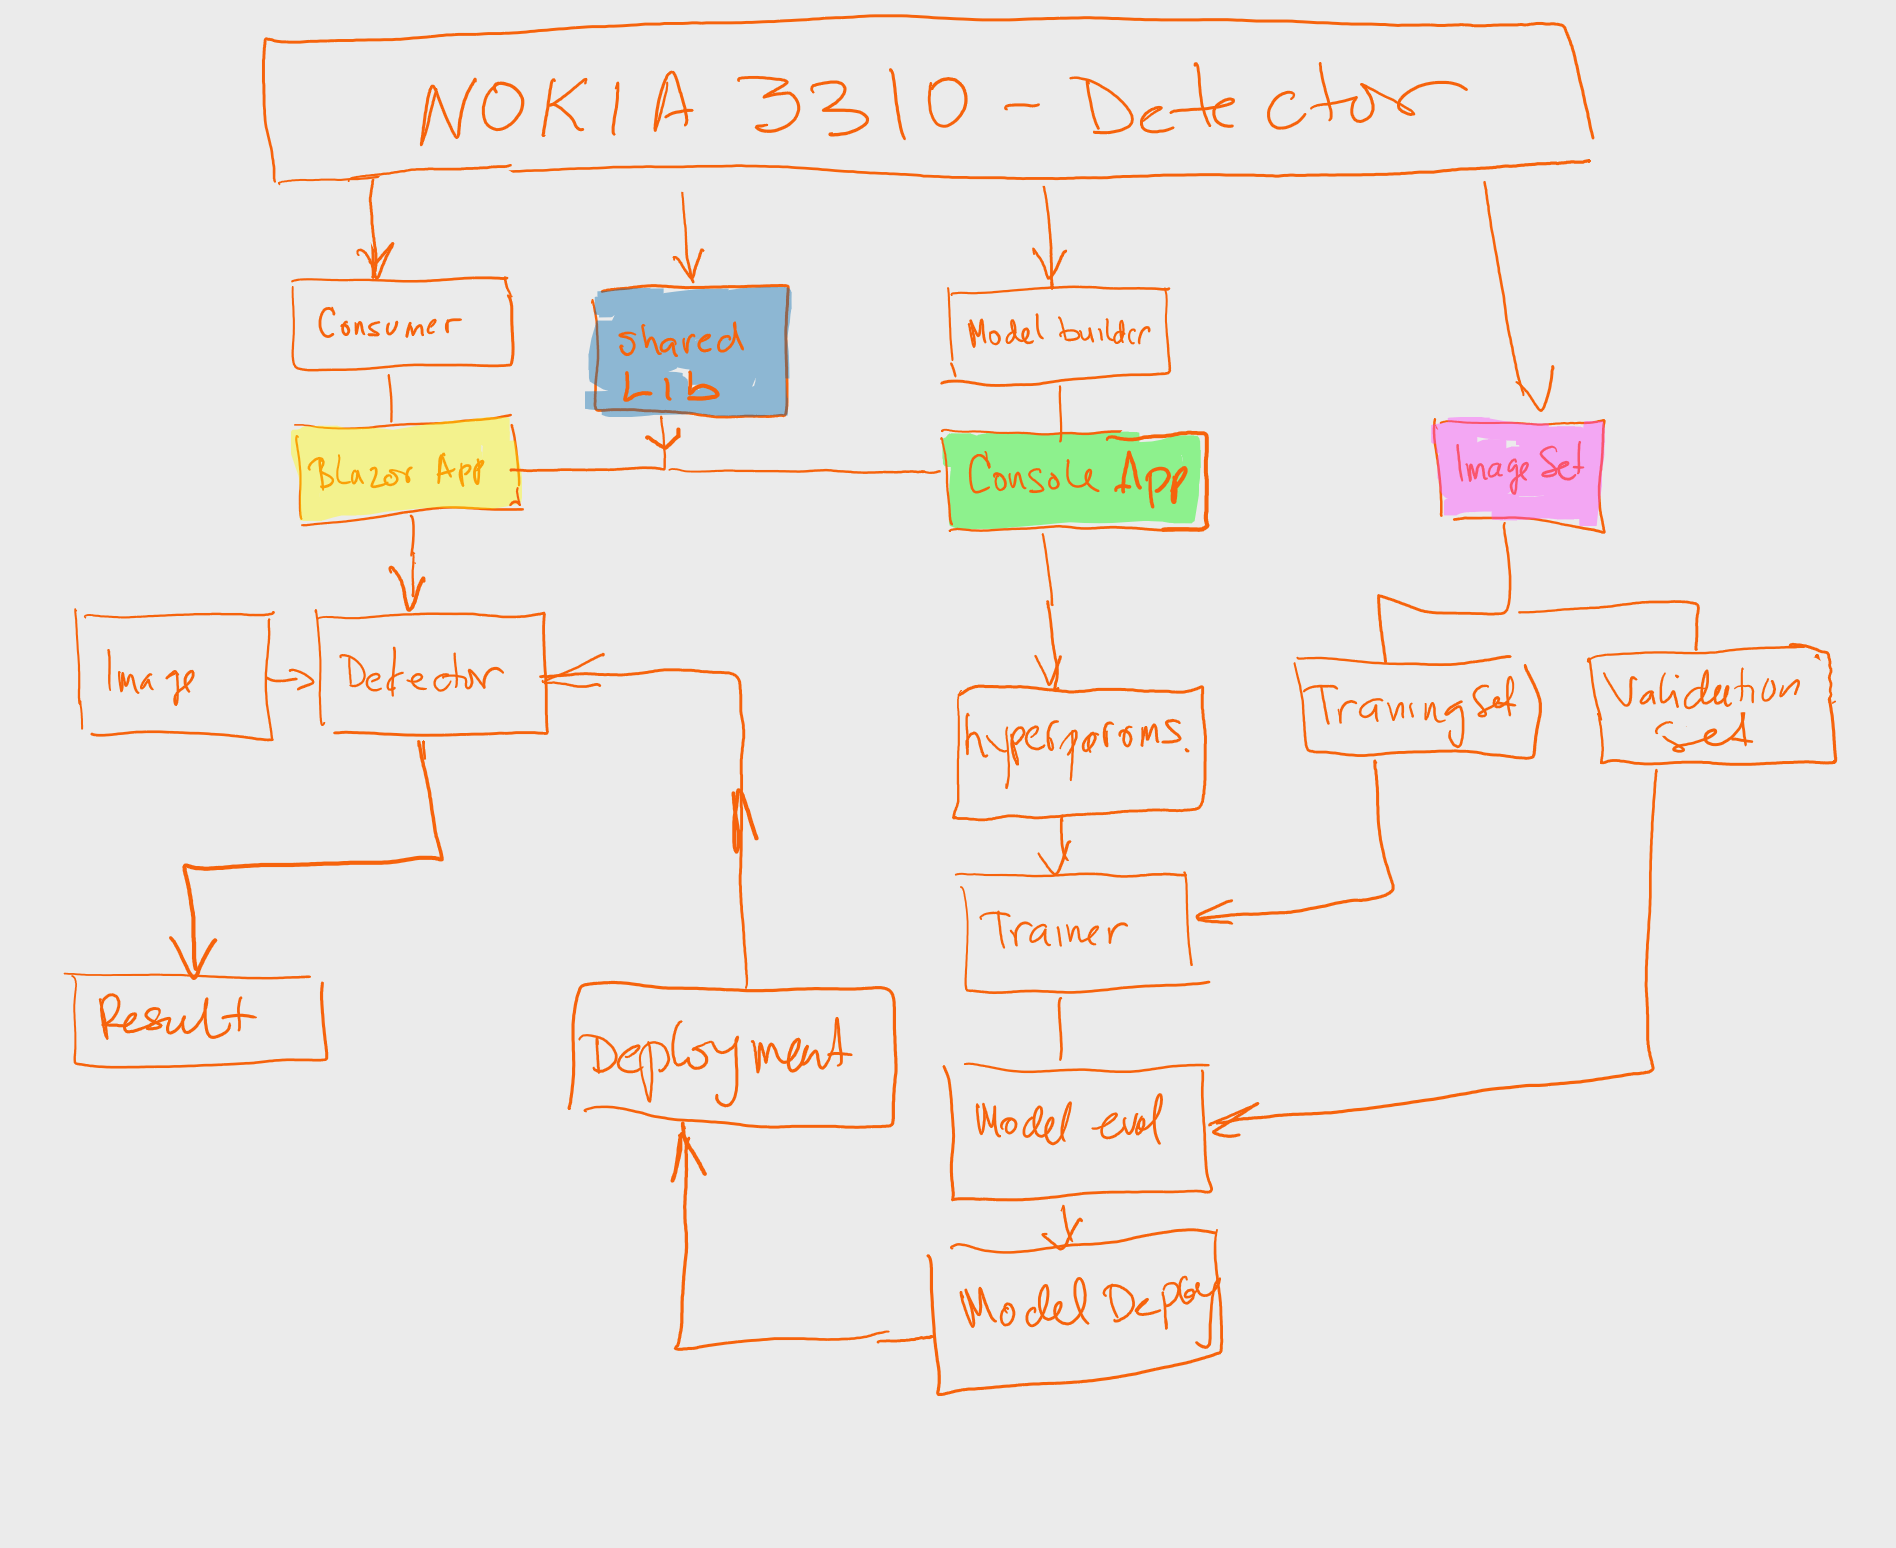 NOKIA 3310 - Detector
Consumer
shared
Lib
Model builder
Blazor App
Console App
Image Set
Image
Detector
hyperparams.
Traning Set
Validation
Set
Trainer
Result
Deployment
Model eval
Model Deploy